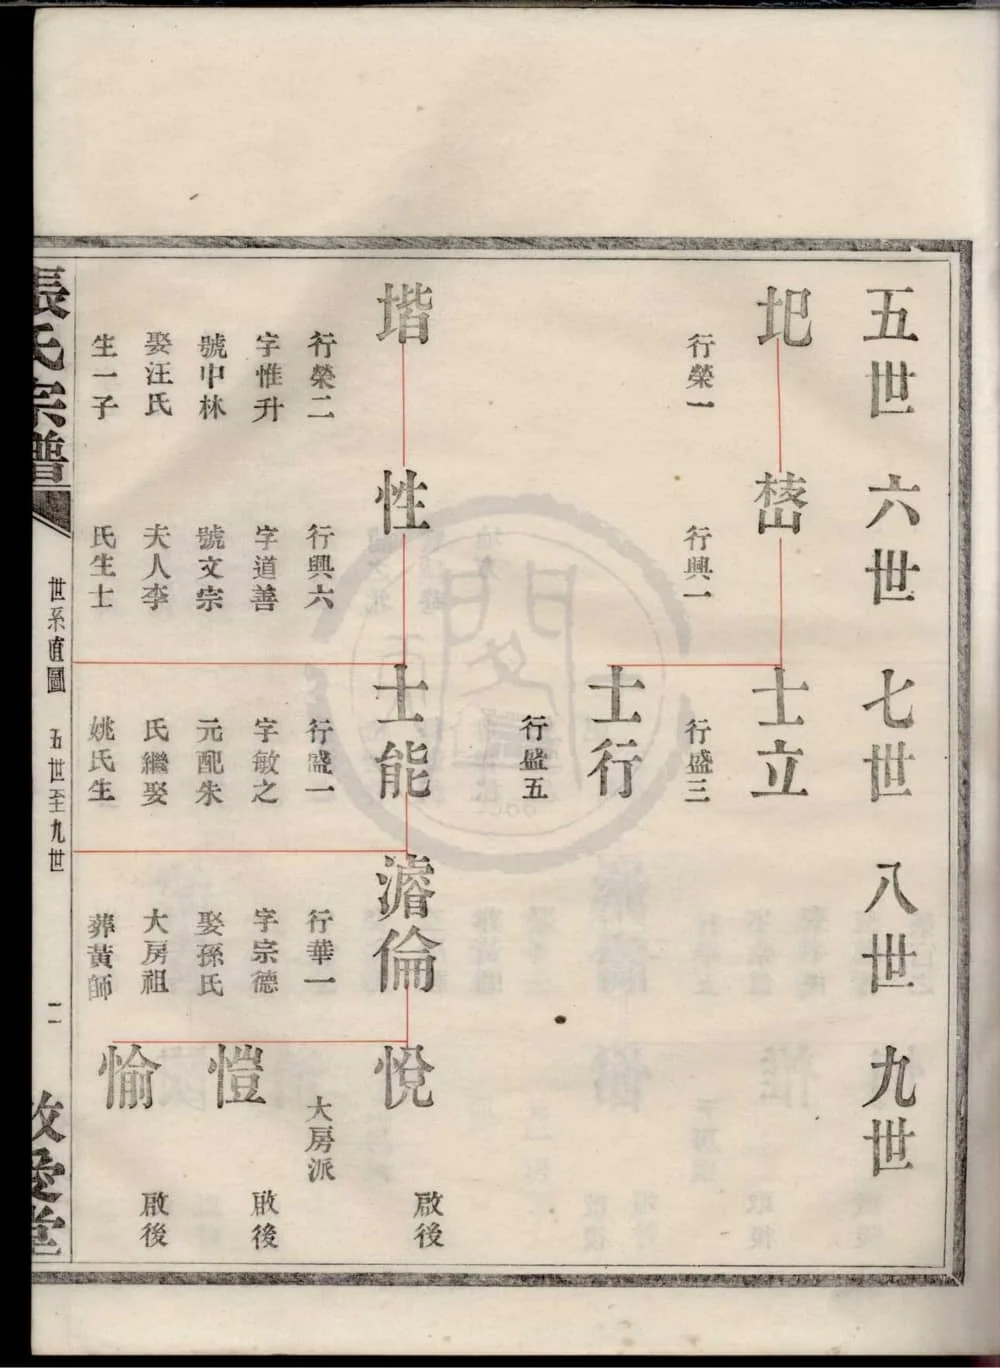 五世
六世
七世
八世
九世
圯
行榮一
行興一
士立
行盛三
士行
行盛五
堦
行榮二
字惟升
號中林
娶汪氏
生一子
性
行興六
字道善
號文宗
夫人李
氏生士
士能
行盛一
字敏之
元配朱
氏繼娶
姚氏生
濬倫
行華一
字宗德
娶孫氏
大房祖
葬黃師
悅
大房派
啟後
愷
啟後
愉
啟後
張氏宗譜
世系直圖
五世至九世
二
敬愛堂